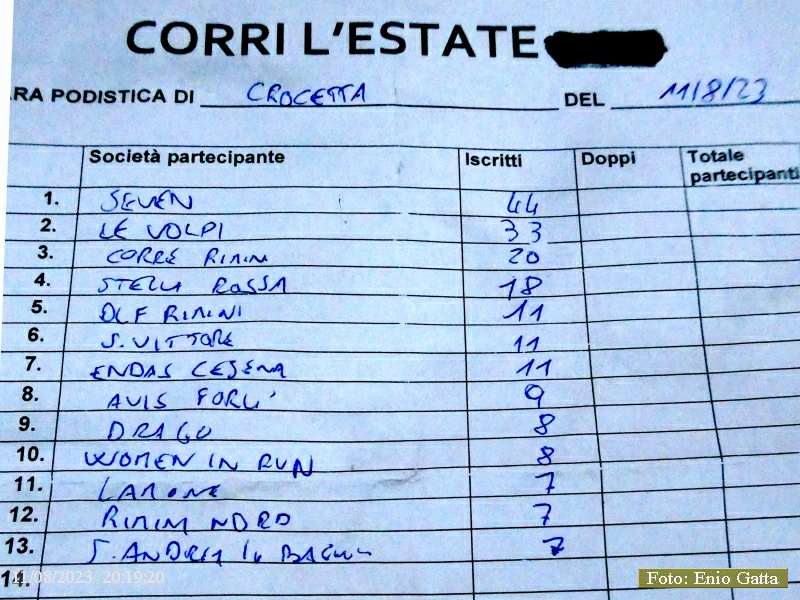 CORRI L'ESTATE
ARA PODISTICA DI CROCETTA DEL 11/8/23
Società partecipante Iscritti Doppi Totale partecipanti
1. SEVEN 44
2. LE VOLPI 33
3. CORRE RIMINI 20
4. STELLA ROSSA 18
5. DLF RIMINI 11
6. S. VITTORE 11
7. ENDAS CESENA 11
8. AVIS FORLI' 9
9. DRAGO 8
10. WOMEN IN RUN 8
11. LAMONE 7
12. RIMINI NORD 7
13. S. ANDREA IN BAGNO 7
14.
11/08/2023 20:19:20
Foto: Enio Gatta